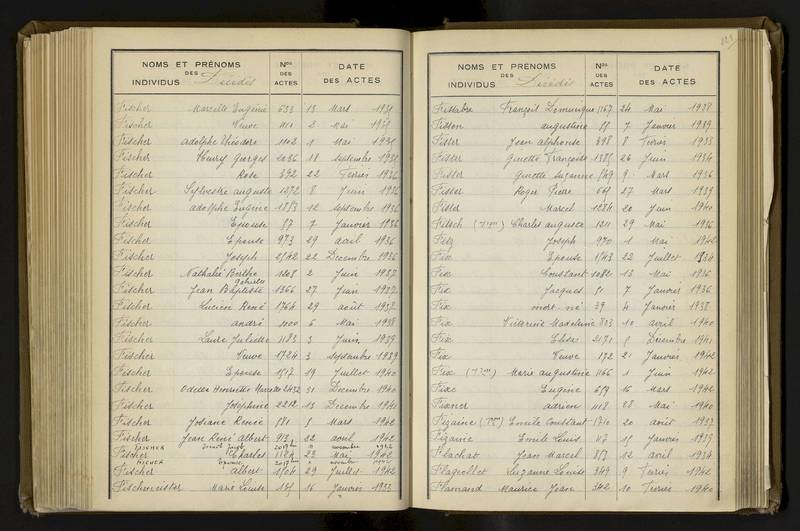 NOMS ET PRÉNOMS DES INDIVIDUS Décédés Nos DES ACTES DATE DES ACTES
Fischer Marcelle Eugénie 633 13 Mars 193
Fischer Veuve 2 Mai
Fischer adolphe Théodore 1102 1 Mai
Fischer Henry Georges 2036 18 septembre
Fischer Rose 392 22 Février 1936
Fischer Sylvestre auguste 1272 8 Juin 1936
Fischer adolphe Eugène 1883 12 septembre 1936
Fischer Epouse 87 7 Janvier 1936
Fischer Epouse 973 29 avril 1936
Fischer Joseph 2542 22 Décembre 1936
Fischer Nathalie Berthe 1208 2 Juin 1937
Gabrielle
Fischer Jean Baptiste 1366 27 Juin 1937
Fischer Lucien René 1764 29 août 1937
Fischer andré 1000 6 Mai 1938
Fischer Laure Juliette 1183 3 Juin 1939
Fischer Veuve 1724 3 septembre 1939
Fischer Epouse 1517 19 Juillet 1940
Fischer Odette Henriette 2432 31 Décembre 1940
Fischer Joséphine 2212 13 Décembre 1941
Fischer Josiane Renée 581 5 Mars 1942
Fischer Jean René albert 913 22 avril 1942
FISCHER novembre 1942
Fischer Charles 1184 23 Mai 1942
FISCHER novembre
Fischer albert 1564 29 Juillet 1942
Fischmeister Marie Louise 16 Janvier 1933
NOMS ET PRÉNOMS DES INDIVIDUS Décédés Nos DES ACTES DATE DES ACTES
François Dominique 1167 24 Mai 1938
Fisson augustine 7 Janvier 1939
Fister Jean alphonse 398 8 Février 1933
Fister Ginette Françoise 26 Juin 1934
Fister Ginette Suzanne 549 9 Mars 1936
Fister Roger Pierre 661 27 Mars 1939
Fister Marcel 1284 20 Juin 1940
Fitsch Charles auguste 1211 29 Mai 1936
Joseph 970 1 Mai 1942
Fix Epouse 1543 22 Juillet 1934
Fix Constant 1082 13 Mai 1936
Fix Jacques 51 7 Janvier 1936
Fix mort-né 39 4 Janvier 1938
Fix Victorine Madeleine 803 10 avril 1940
Fix Elise 2171 Décembre 1941
Fix Veuve 172 21 Janvier 1942
Fix Marie augustine 1266 1 Juin 1942
Eugène 659 16 Mars 1942
adrien 1118 28 Mai 1940
Fizaine Emile Constant 1710 20 août 1937
Fizaine Emile Louis 117 15 Janvier 1939
Flachat Jean Marcel 853 12 avril 1934
Flageollet Suzanne Louise 349 9 Février 1942
Flamand Maurice Jean 342 10 Février 1940